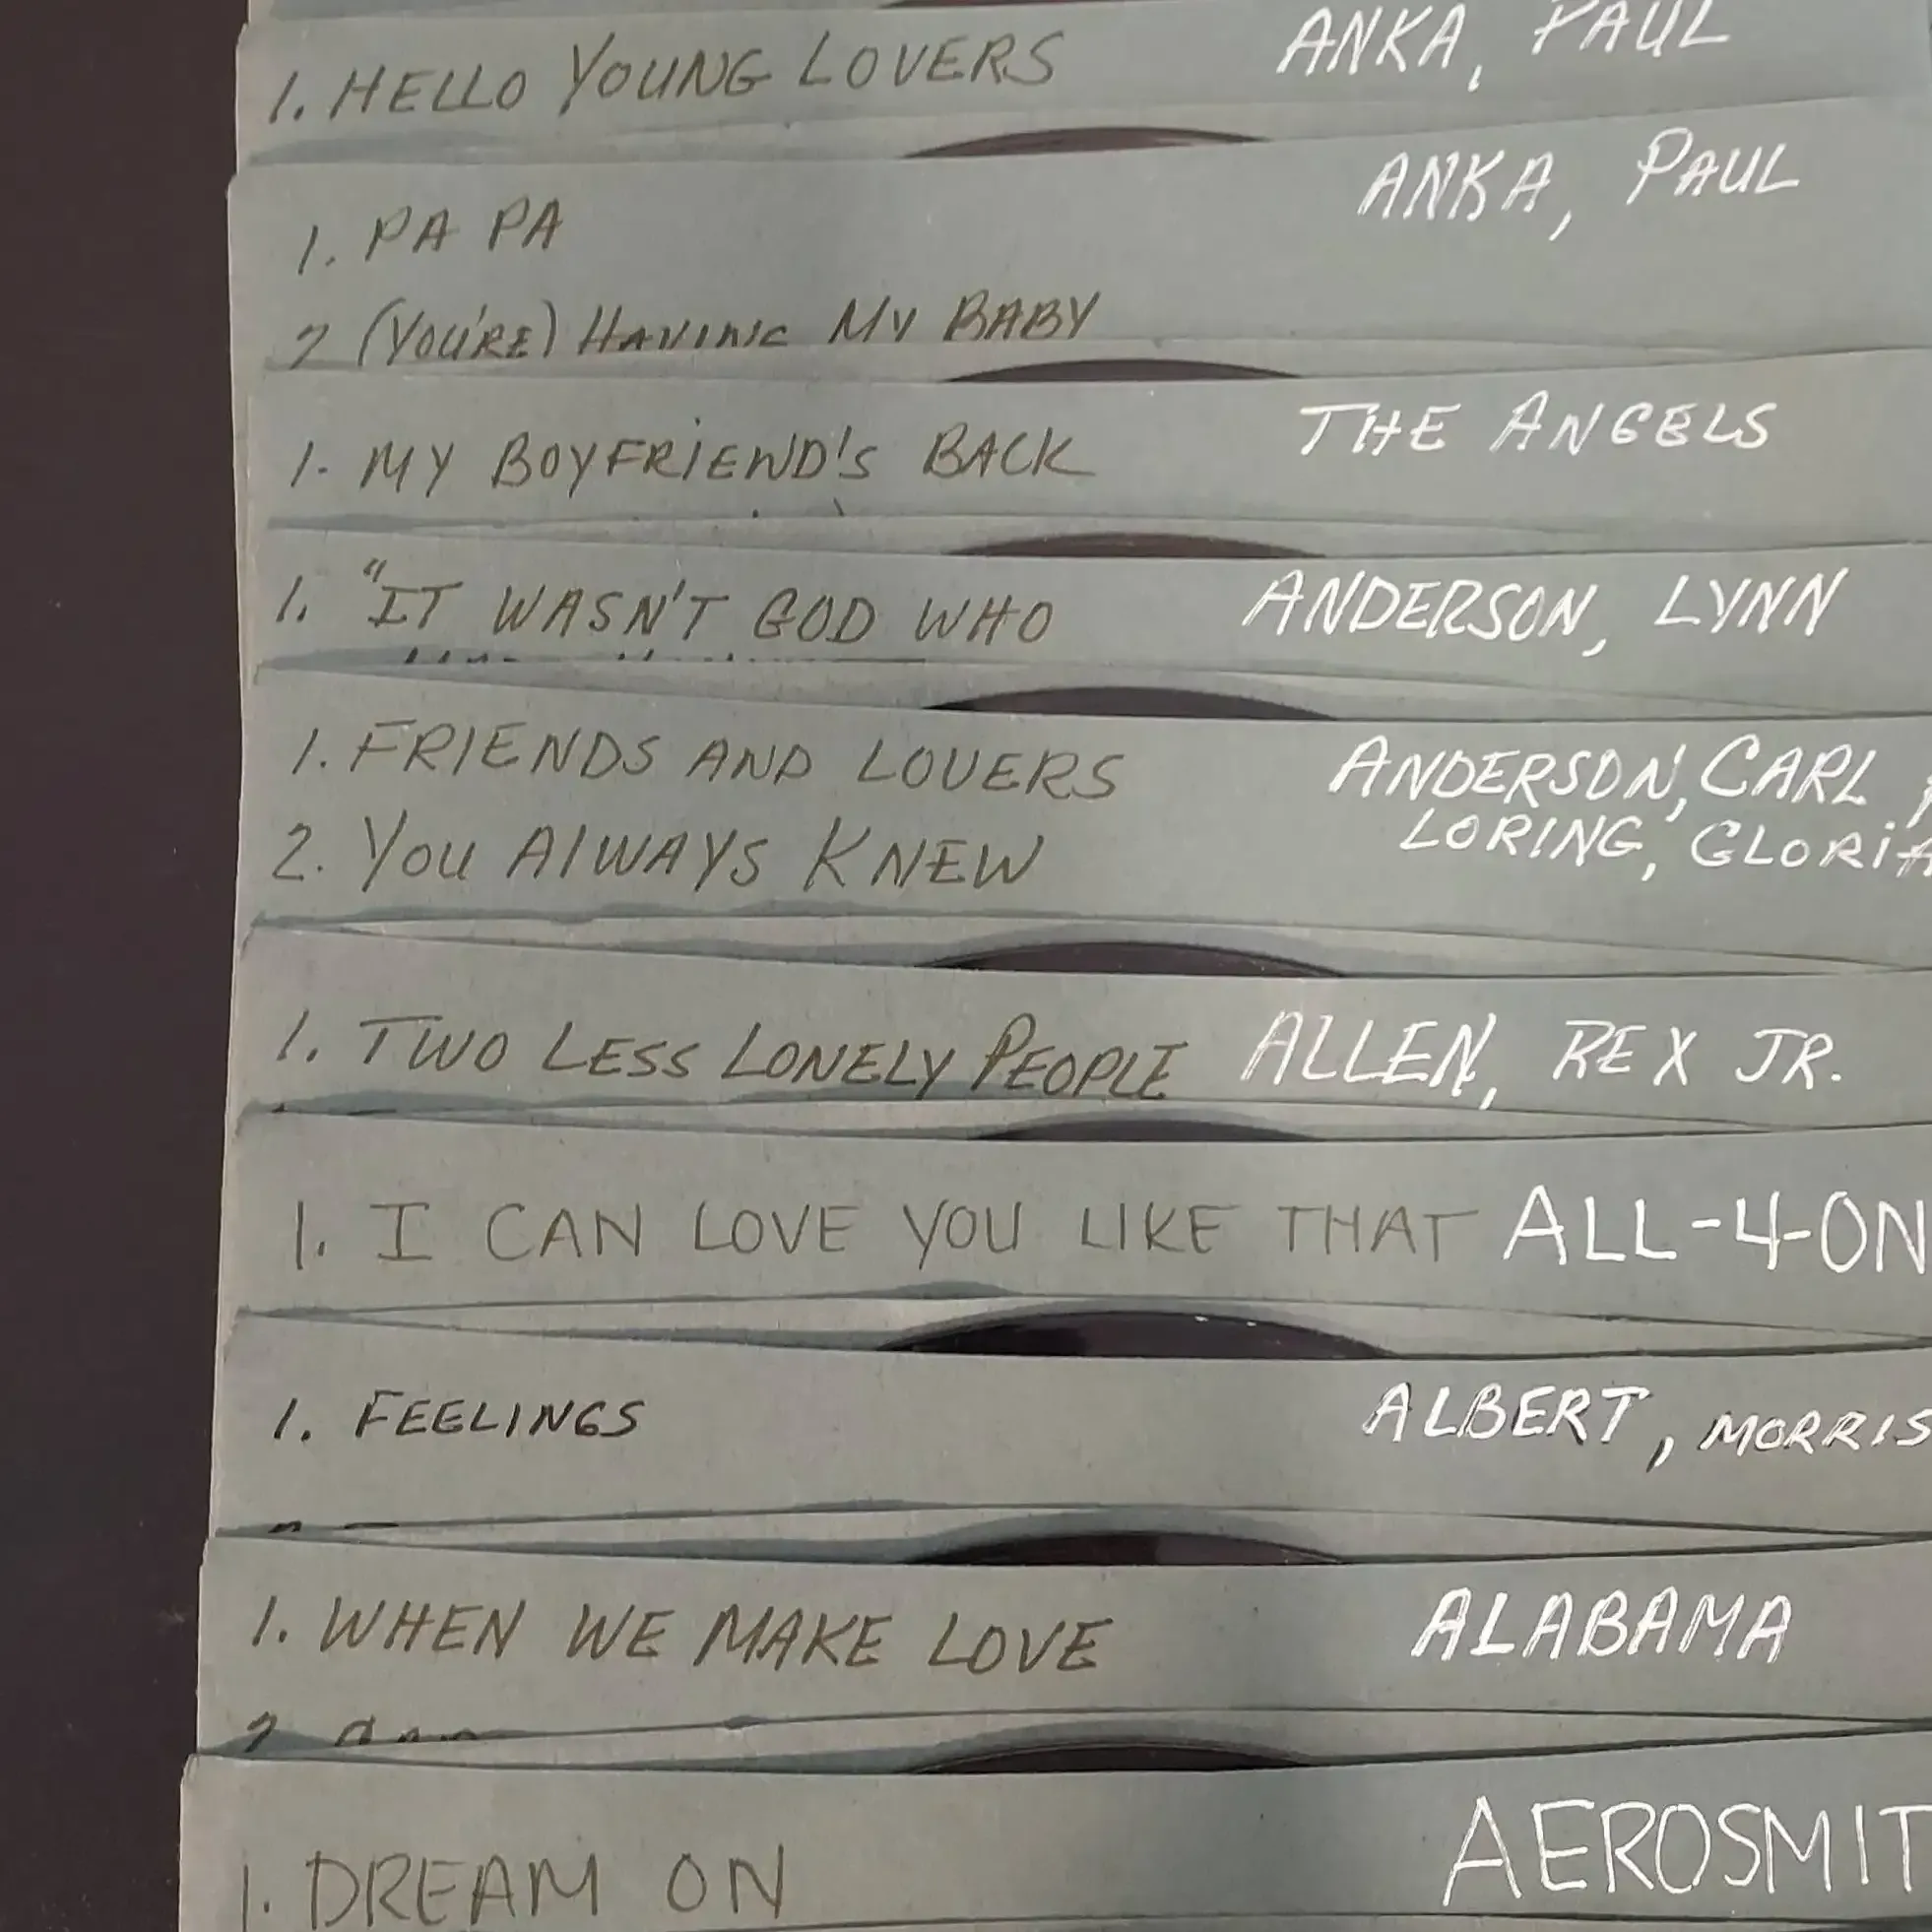 1. HELLO YOUNG LOVERS ANKA, PAUL
1. PA PA ANKA, PAUL
2 (YOU'RE) HAVING MY BABY
1. MY BOYFRIEND'S BACK THE ANGELS
1. "IT WASN'T GOD WHO ANDERSON, LYNN
1. FRIENDS AND LOVERS ANDERSON, CARL
2. YOU ALWAYS KNEW LORING, GLORIA
1. TWO LESS LONELY PEOPLE ALLEN, REX JR.
1. I CAN LOVE YOU LIKE THAT ALL-4-ON
1. FEELINGS ALBERT, MORRIS
1. WHEN WE MAKE LOVE ALABAMA
2
1. DREAM ON AEROSMIT